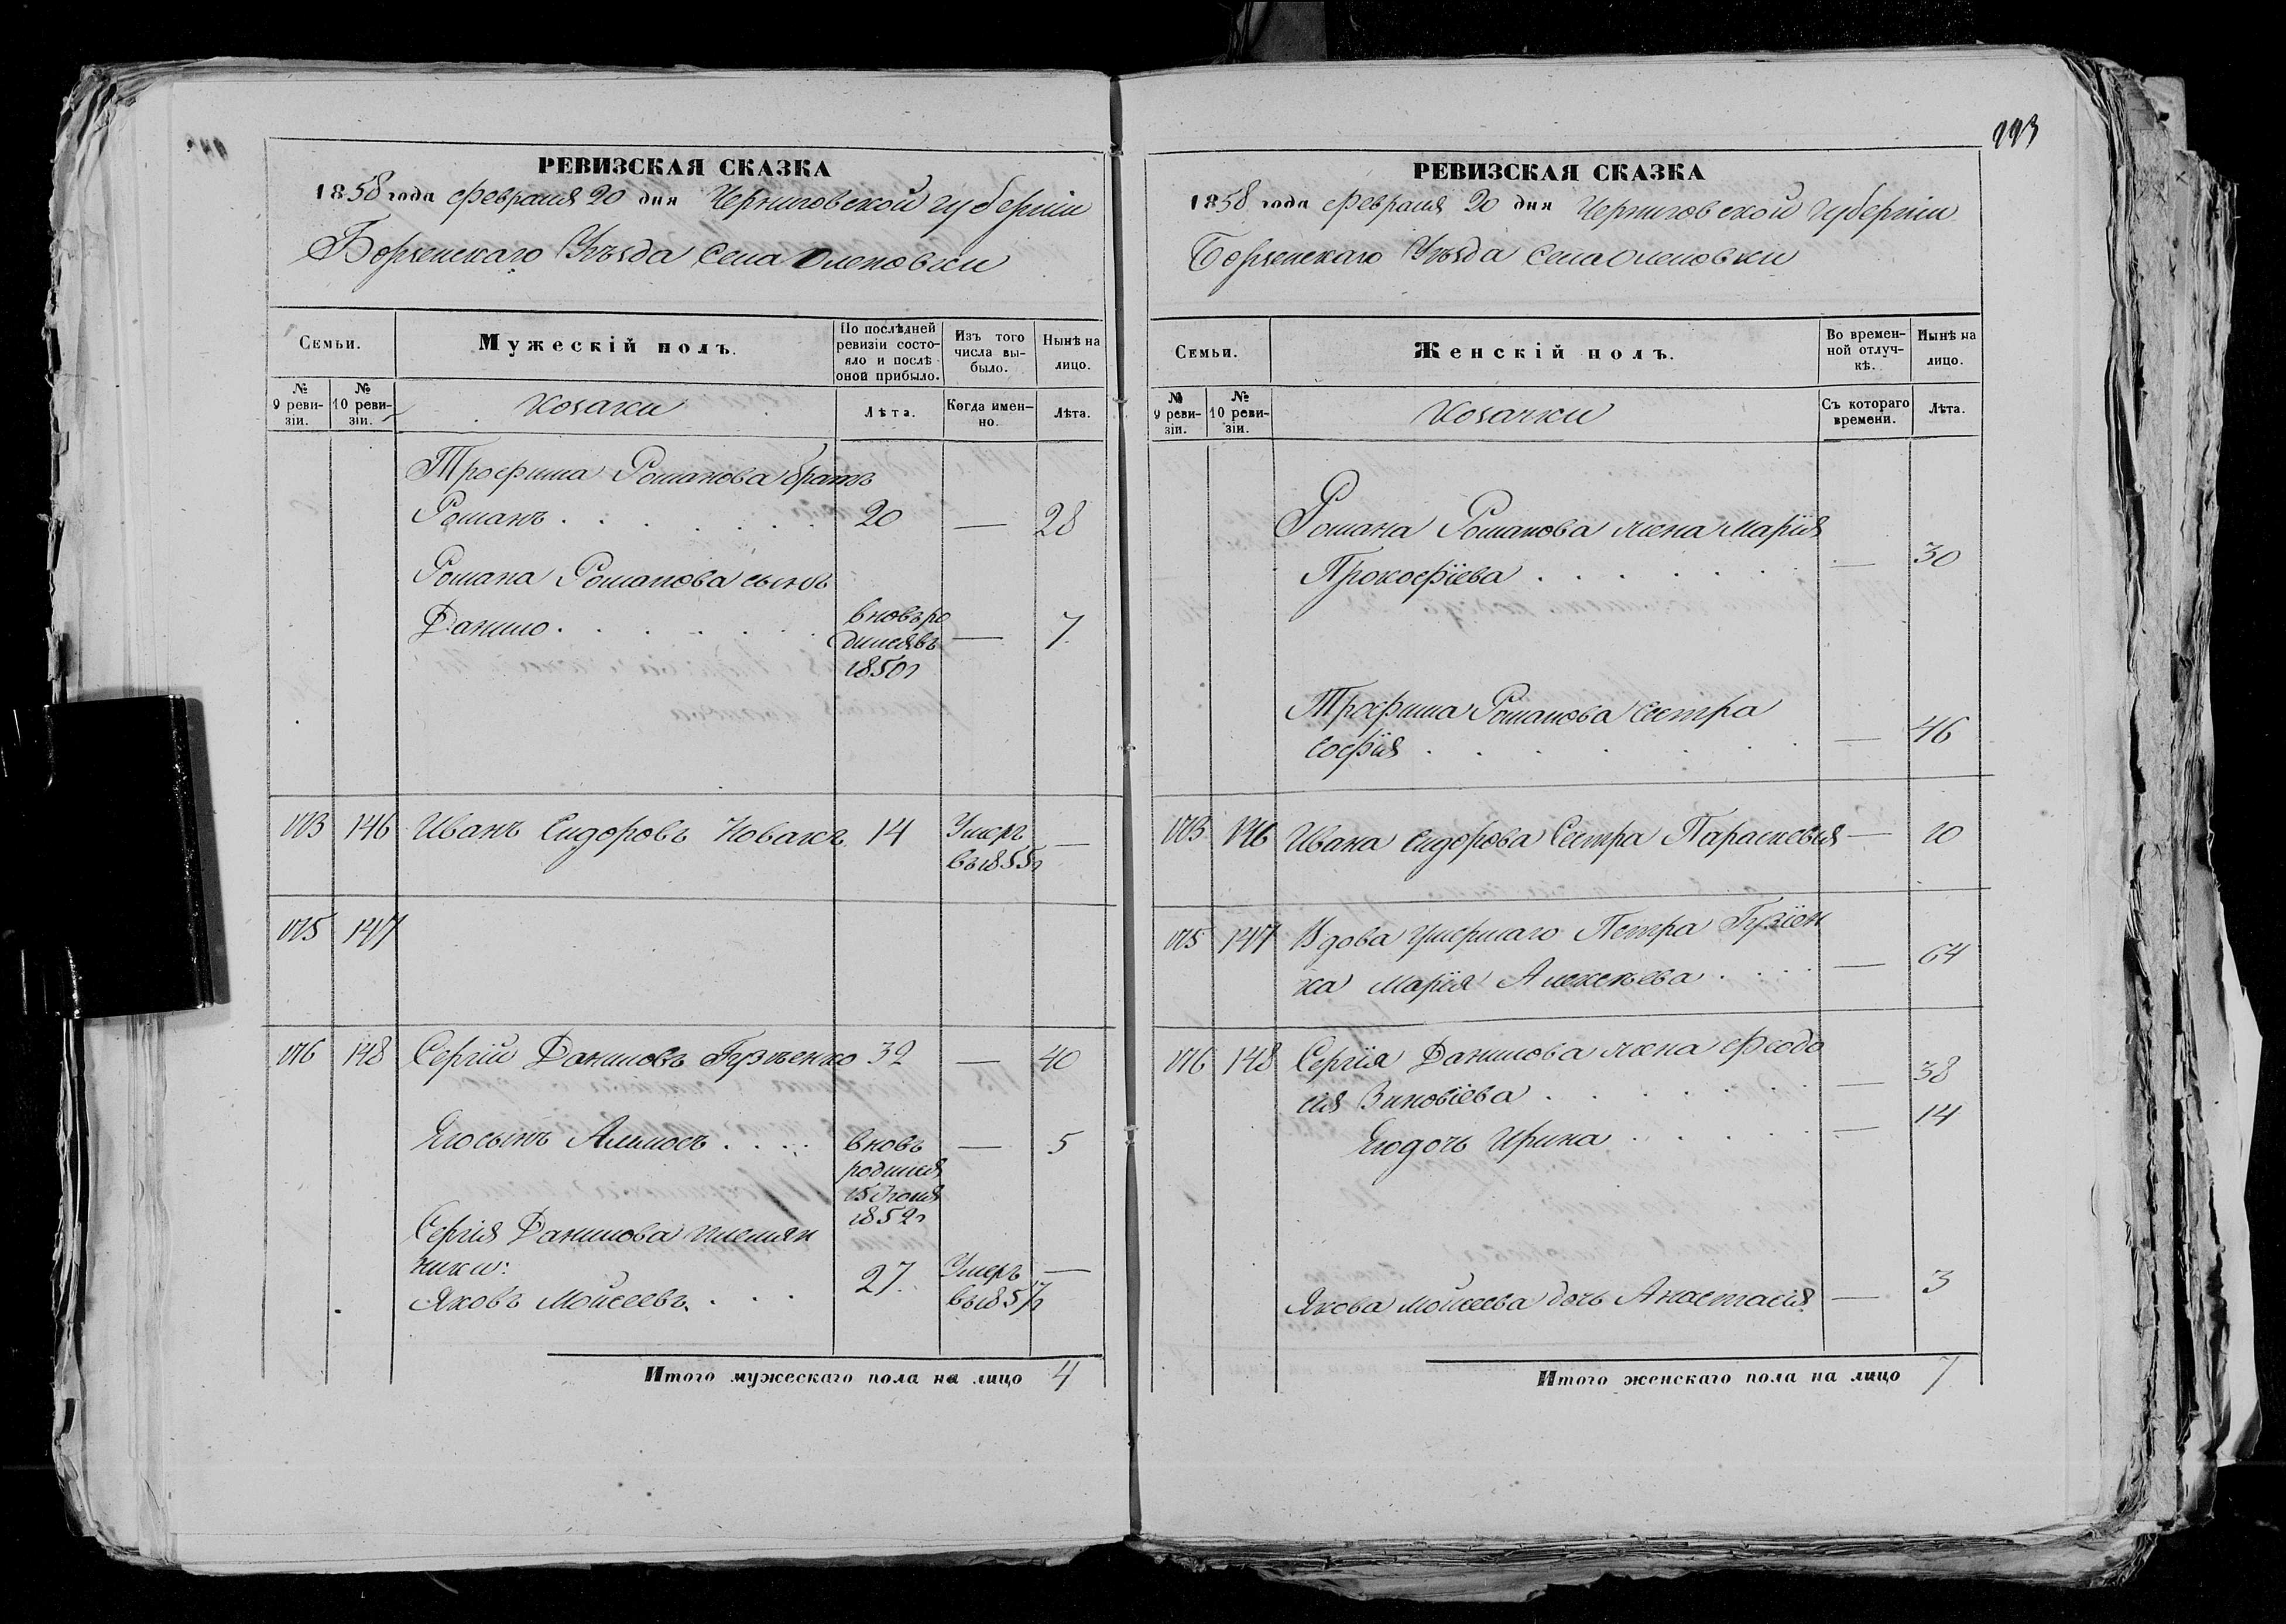 РЕВИЗСКАЯ СКАЗКА
1858 года Февраля 20 дня Черниговской губерніи
Борзенскаго Уѣзда Села Оленовки
Семьи.
Мужескій полъ.
По послѣдней ревизіи состояло и послѣ оной прибыло.
Изъ того числа выбыло.
Нынѣ на лицо.
№ 9 ревизіи.
№ 10 ревизіи.
Козаки
Лѣта.
Когда именно.
Лѣта.
Трофима Романова братъ
Романъ . . . . . . . 20 — 28
Романа Романова сынъ
Данило . . . . . . вновь ро
дился въ — 7
1850 г
146 Иванъ Сидоровъ Новакъ 14 Умеръ —
въ 1855 г
147
148 Сергій Даниловъ Гузѣенко 32 — 40
Его сынъ Алимпъ . . . . вновь — 5
родился
15 Іюля
1852 г
Сергія Данилова племян
ники:
Яковъ Моисеевъ . . . 27. Умеръ —
въ 1857 г
Итого мужескаго пола на лицо 4
РЕВИЗСКАЯ СКАЗКА
1858 года Февраля 20 дня Черниговской губерніи
Борзенскаго Уѣзда Села Оленовки
Семьи.
Женскій полъ.
Во временной отлучкѣ.
Нынѣ на лицо.
№ 9 ревизіи.
№ 10 ревизіи.
Козачки
Съ котораго времени.
Лѣта.
Романа Романова жена Марія
Прокофіева . . . . . . — 30
Трофима Романова Сестра
Софія . . . . . . . — 46
146 Ивана Сидорова Сестра Параскевія — 10
147 Вдова умершаго Петра Гузіен
ка Марія Алексѣева . . . . — 64
148 Сергія Данилова жена Феодо
сия Зиновіева . . . . . . — 38
Его дочь Ирина . . . . . — 14
Якова Моисеева дочь Анастасія — 3
Итого женскаго пола на лицо 7